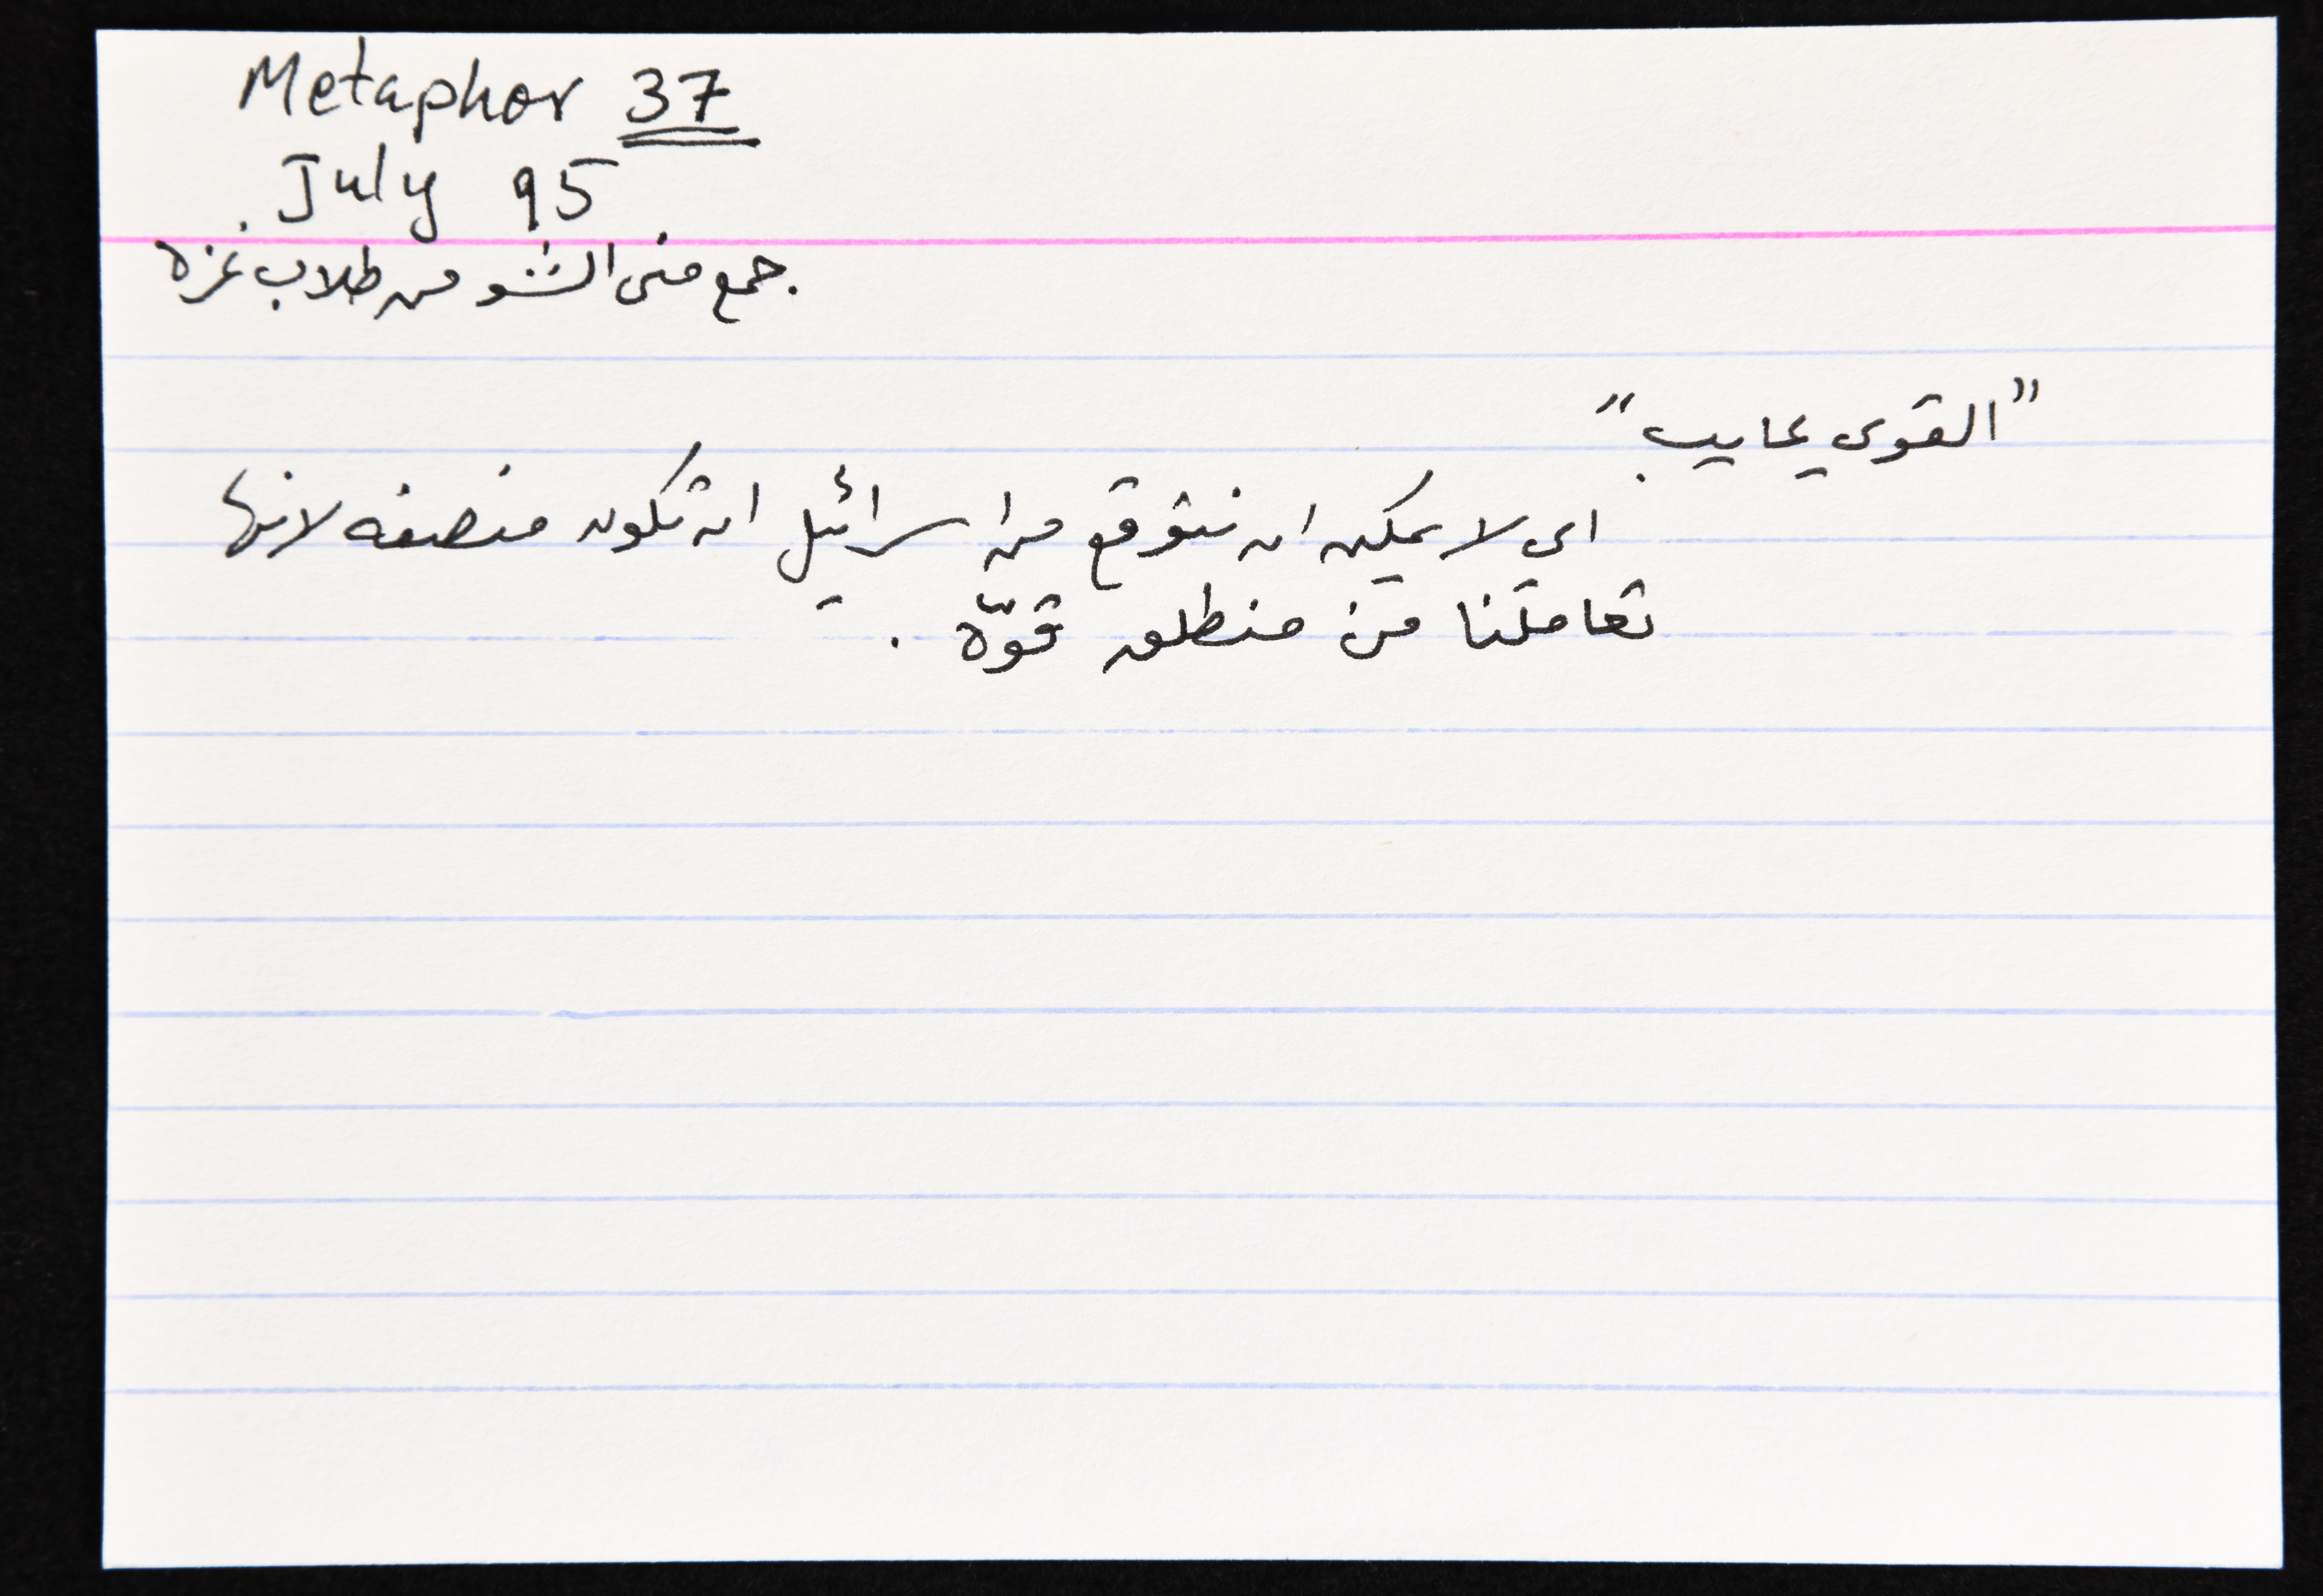 Metaphor 37
July 95
جمع منى الشو من طلاب غزه
"القوي عايب"
اي لا يمكن ان نتوقع من اسرائيل ان تكون منصفه لانها
تعاملنا من منطلق قوّه .